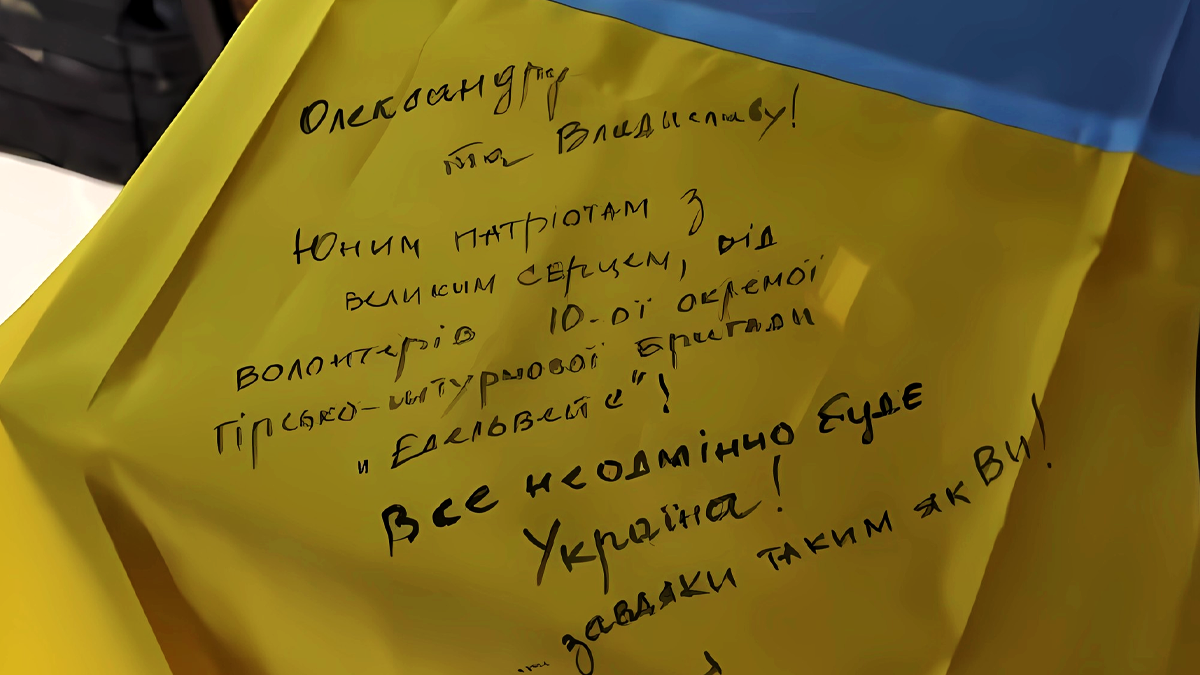 Олександру
та Владиславу!
Юним патріотам з
великим серцем, від
волонтерів 10-ої окремої
гірсько-штурмової бригади
"Едельвейс"!
Все неодмінно буде
Україна!
завдяки таким як Ви!